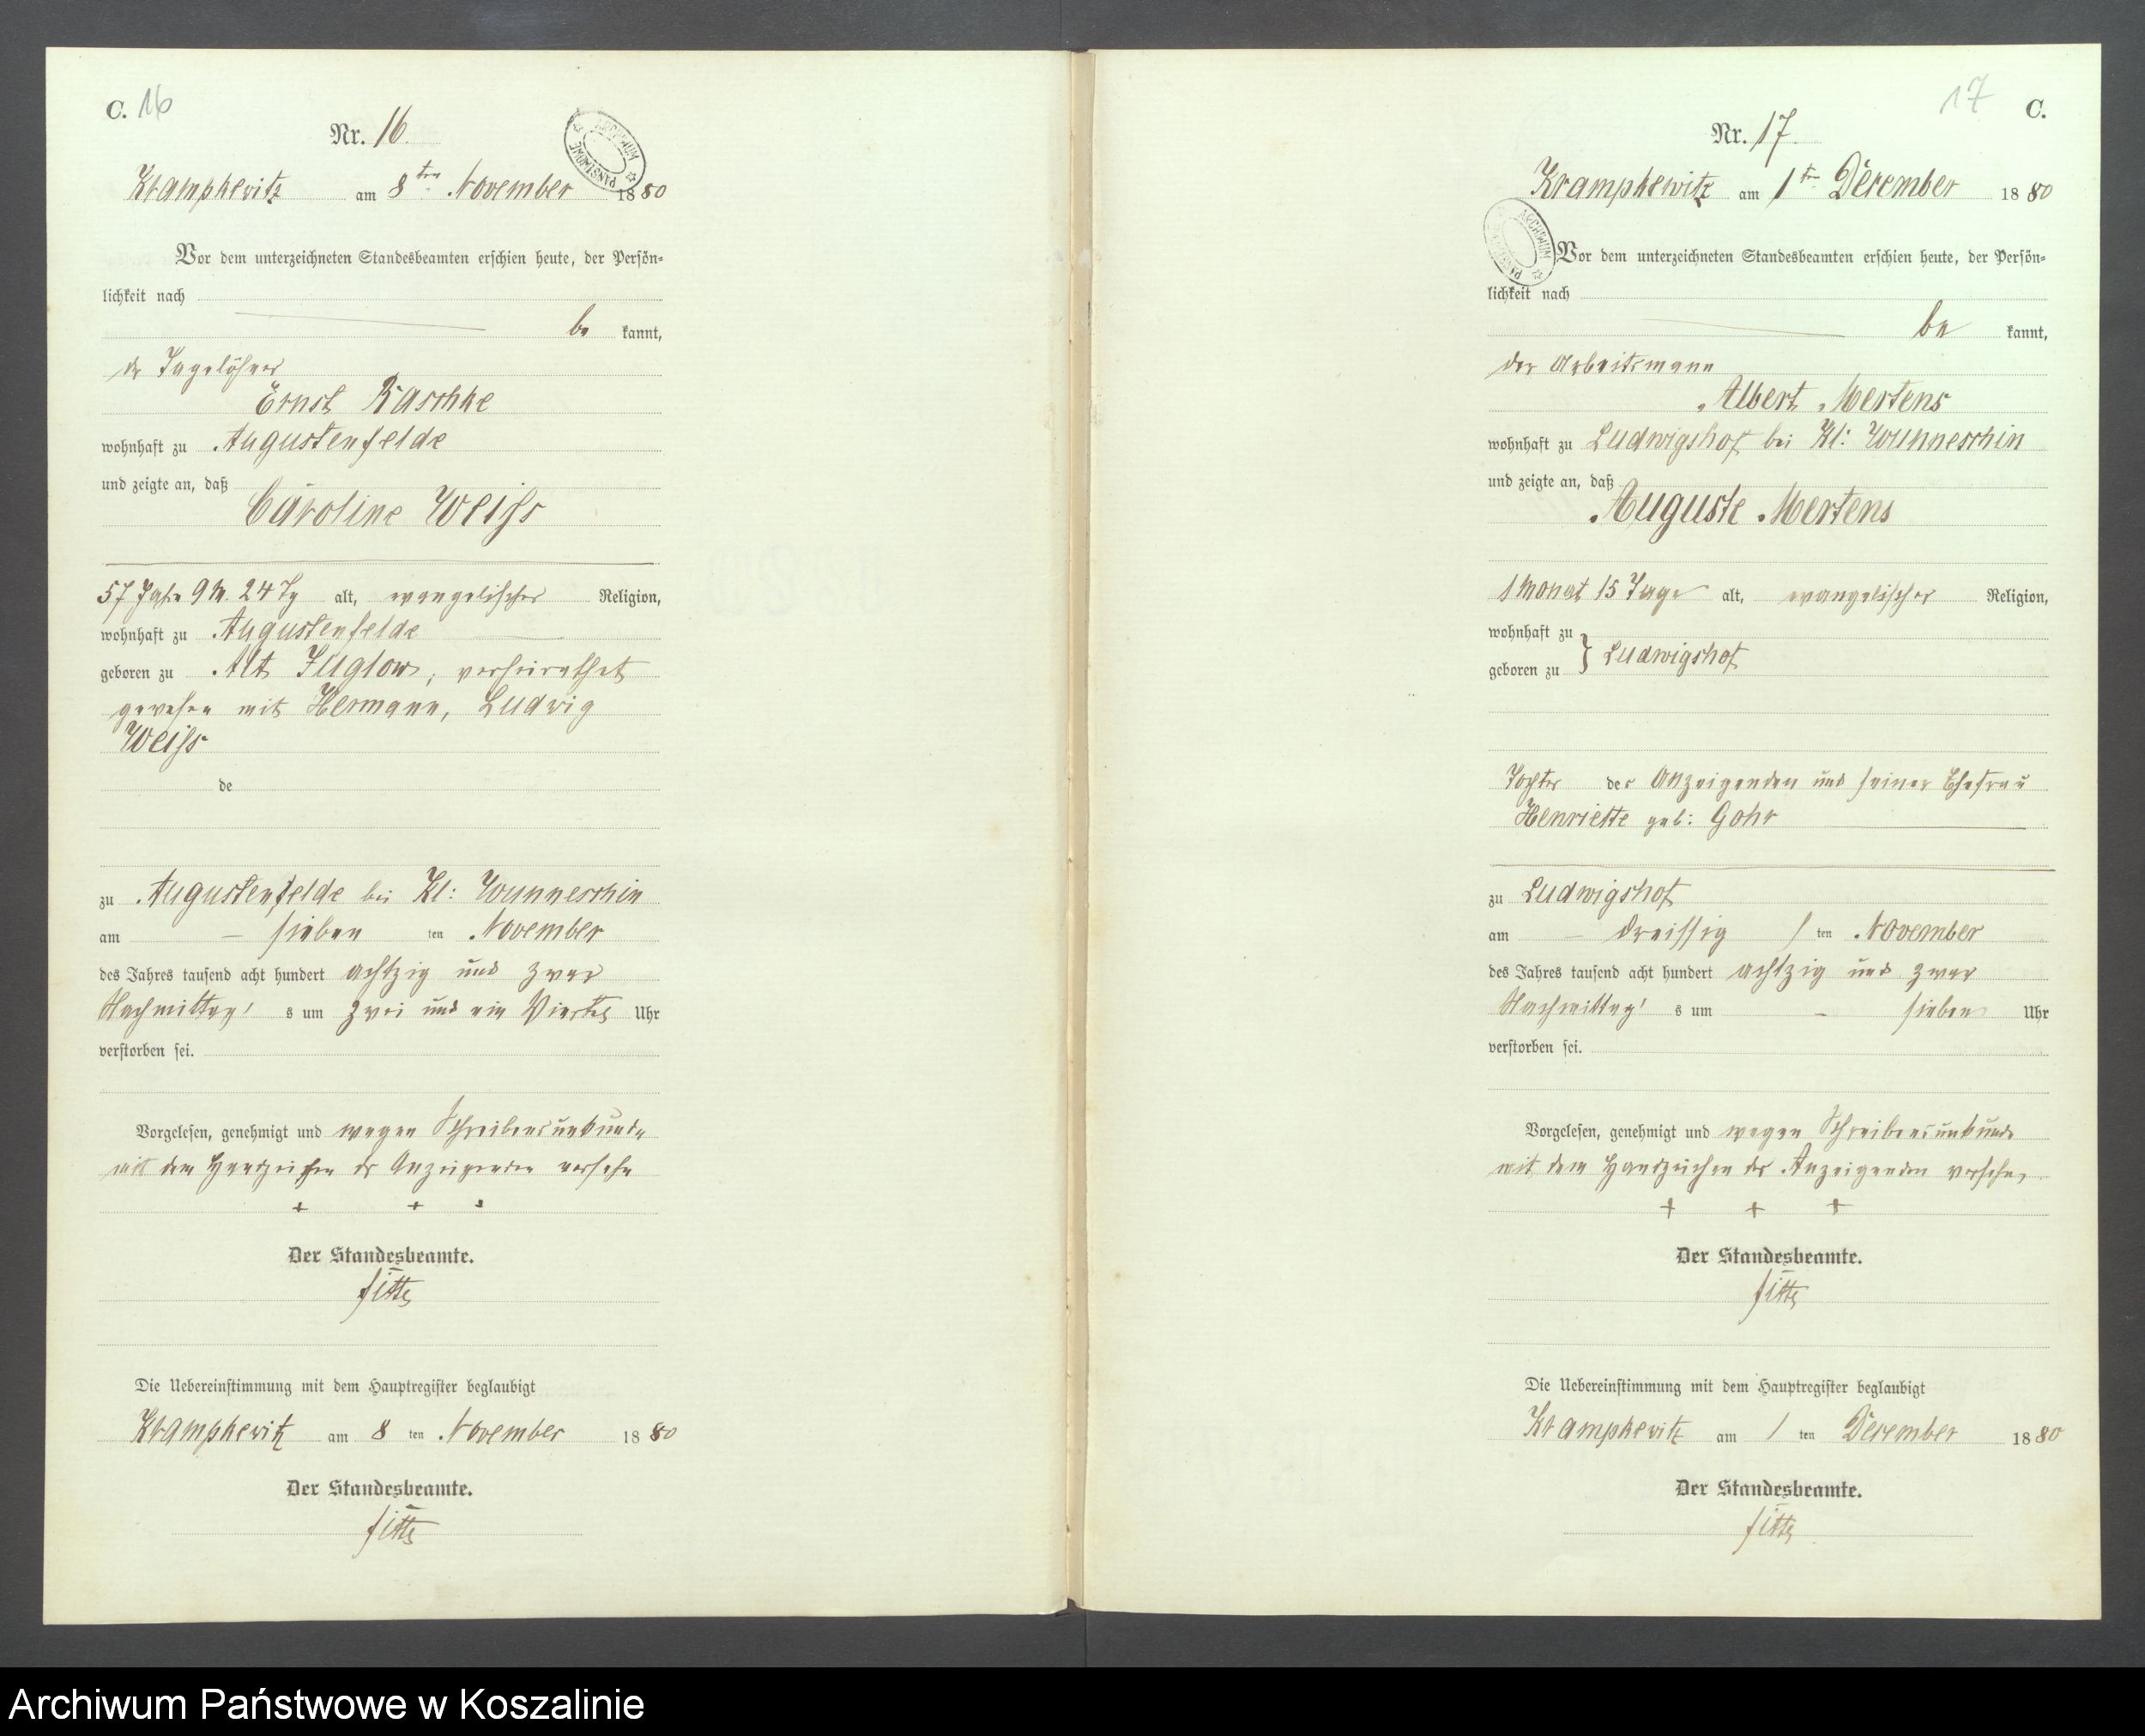 C. 16
Nr. 16.
ARCHIWUM PAŃSTWOWE
Krampkewitz am 8ten November 1880
Vor dem unterzeichneten Standesbeamten erschien heute, der Persön-
lichkeit nach
be kannt,
der Tagelöhner
Ernst Raschke
wohnhaft zu Augustenfelde
und zeigte an, daß
Caroline Weiss
57 Jahre 9 M. 24 Tg alt, evangelischer Religion,
wohnhaft zu Augustenfelde
geboren zu Alt Juglow, verheirathet
gewesen mit Hermann, Ludwig
Weiss
de
zu Augustenfelde bei Kl: Wunneschin
am – sieben ten November
des Jahres tausend acht hundert achtzig und zwar
Nachmittag's um zwei und ein Viertel Uhr
verstorben sei.
Vorgelesen, genehmigt und wegen Schreibensunkunde
mit dem Handzeichen des Anzeigenden versehn
+ + +
Der Standesbeamte.
Die Uebereinstimmung mit dem Hauptregister beglaubigt
Krampkewitz am 8 ten November 1880
Der Standesbeamte.
17 C.
Nr. 17.
Krampkewitz am 1ten December 1880
ARCHIWUM PAŃSTWOWE
Vor dem unterzeichneten Standesbeamten erschien heute, der Persön-
lichkeit nach
be kannt,
der Arbeitsmann
Albert Mertens
wohnhaft zu Ludwigshof bei Kl: Wunneschin
und zeigte an, daß
Auguste Mertens
1 Monat 15 Tage alt, evangelischer Religion,
wohnhaft zu
geboren zu } Ludwigshof
Tochter des Anzeigenden und seiner Ehefrau
Henriette geb: Gohr
zu Ludwigshof
am – dreissig ten November
des Jahres tausend acht hundert achtzig und zwar
Nachmittag's um – sieben Uhr
verstorben sei.
Vorgelesen, genehmigt und wegen Schreibensunkunde
mit dem Handzeichen des Anzeigenden versehn,
+ + +
Der Standesbeamte.
Die Uebereinstimmung mit dem Hauptregister beglaubigt
Krampkewitz am 1 ten December 1880
Der Standesbeamte.
Archiwum Państwowe w Koszalinie